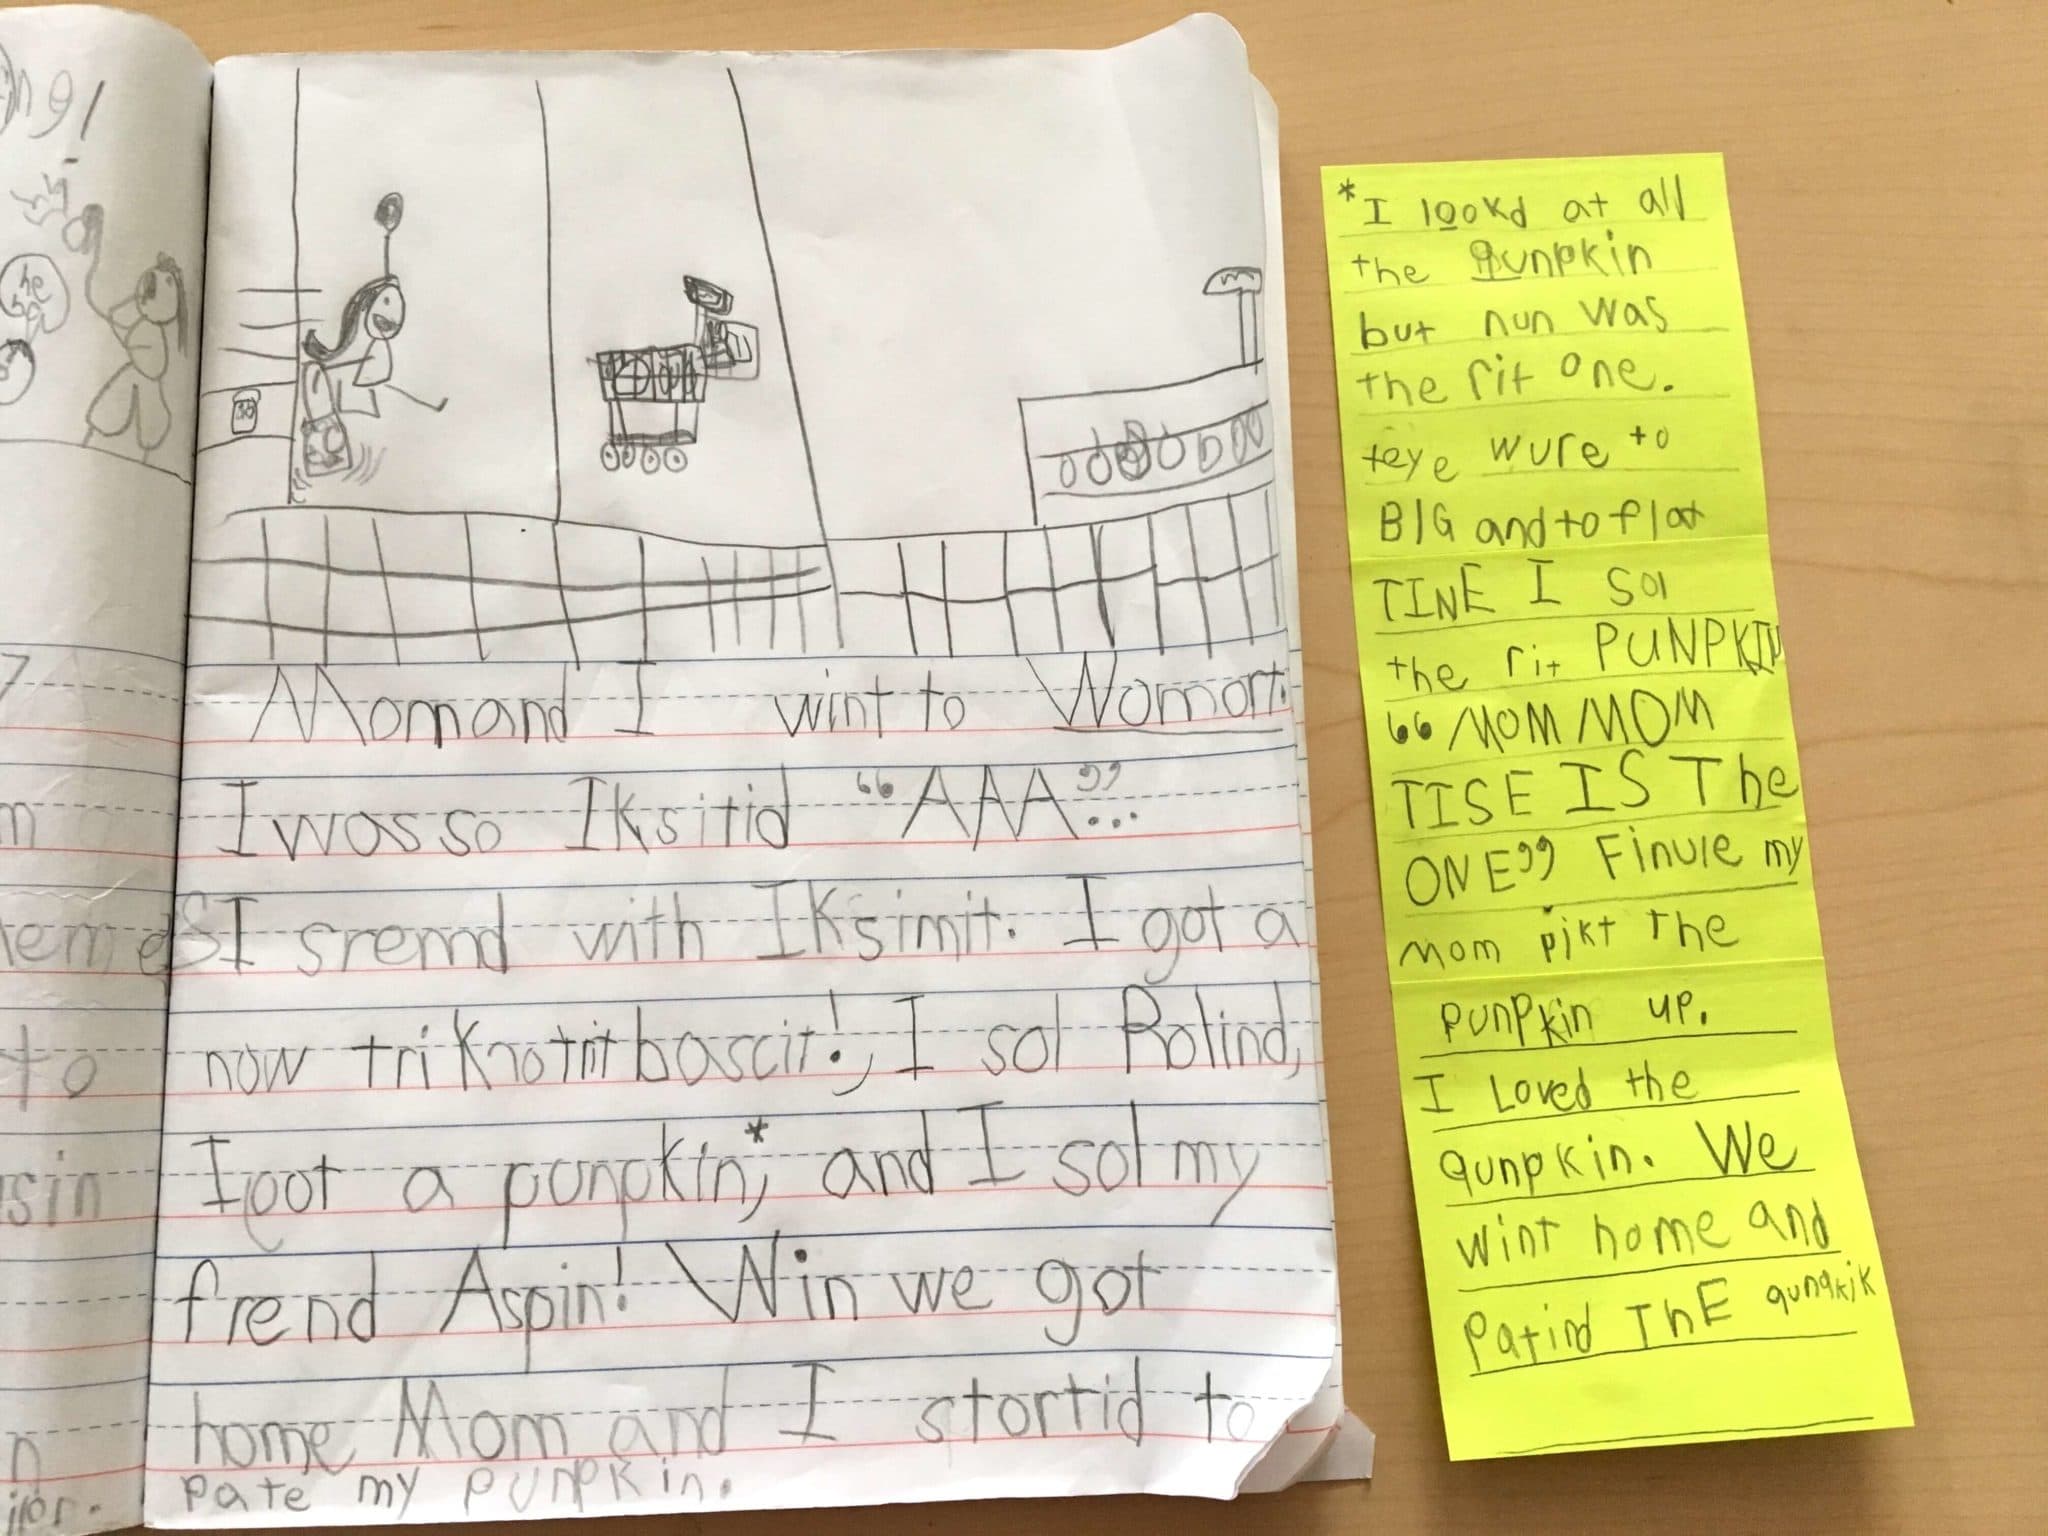 ng!
he
Mom and I wint to Womort.
I was so Iksitid “AAA”...
I sremd with Iksimit. I got a
now trik no trit bascit!, I sol Rolind,
I got a punpkin,* and I sol my
frend Aspin! Win we got
home Mom and I stortid to
pate my punpkin.
7
m
hemes
to
sin
n
*I lookd at all
the qunpkin
but nun was
the rit one.
teye wure to
BIG and to flat
TINE I sol
the rit PUNPKIN
“MOM MOM
TISE IS The
ONE” Finule my
mom pikt the
punpkin up.
I Loved the
qunpkin. We
wint home and
patind ThE qunqkik